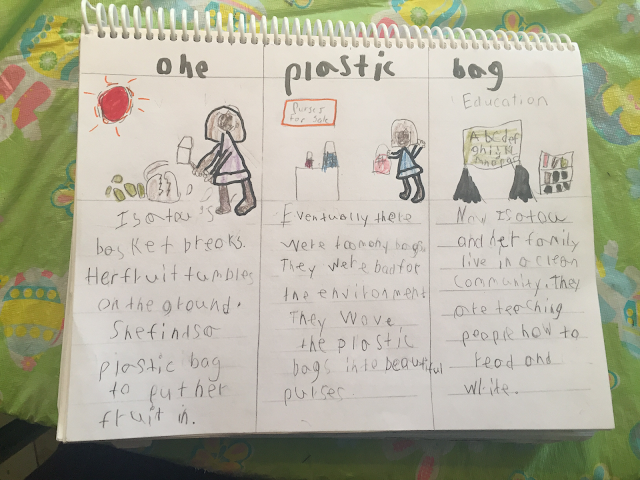 one plastic bag
Isatou's
basket breaks.
Her fruit tumbles
on the ground.
She finds a
plastic bag
to put her
fruit in.
Purses
for Sale
Eventually there
were too many bags.
They were bad for
the environment
They wove
the plastic
bags into beautiful
purses.
Education
Abcdef
ghijk
Now Isatou
and her family
live in a clean
community. They
are teaching
people how to
read and
write.